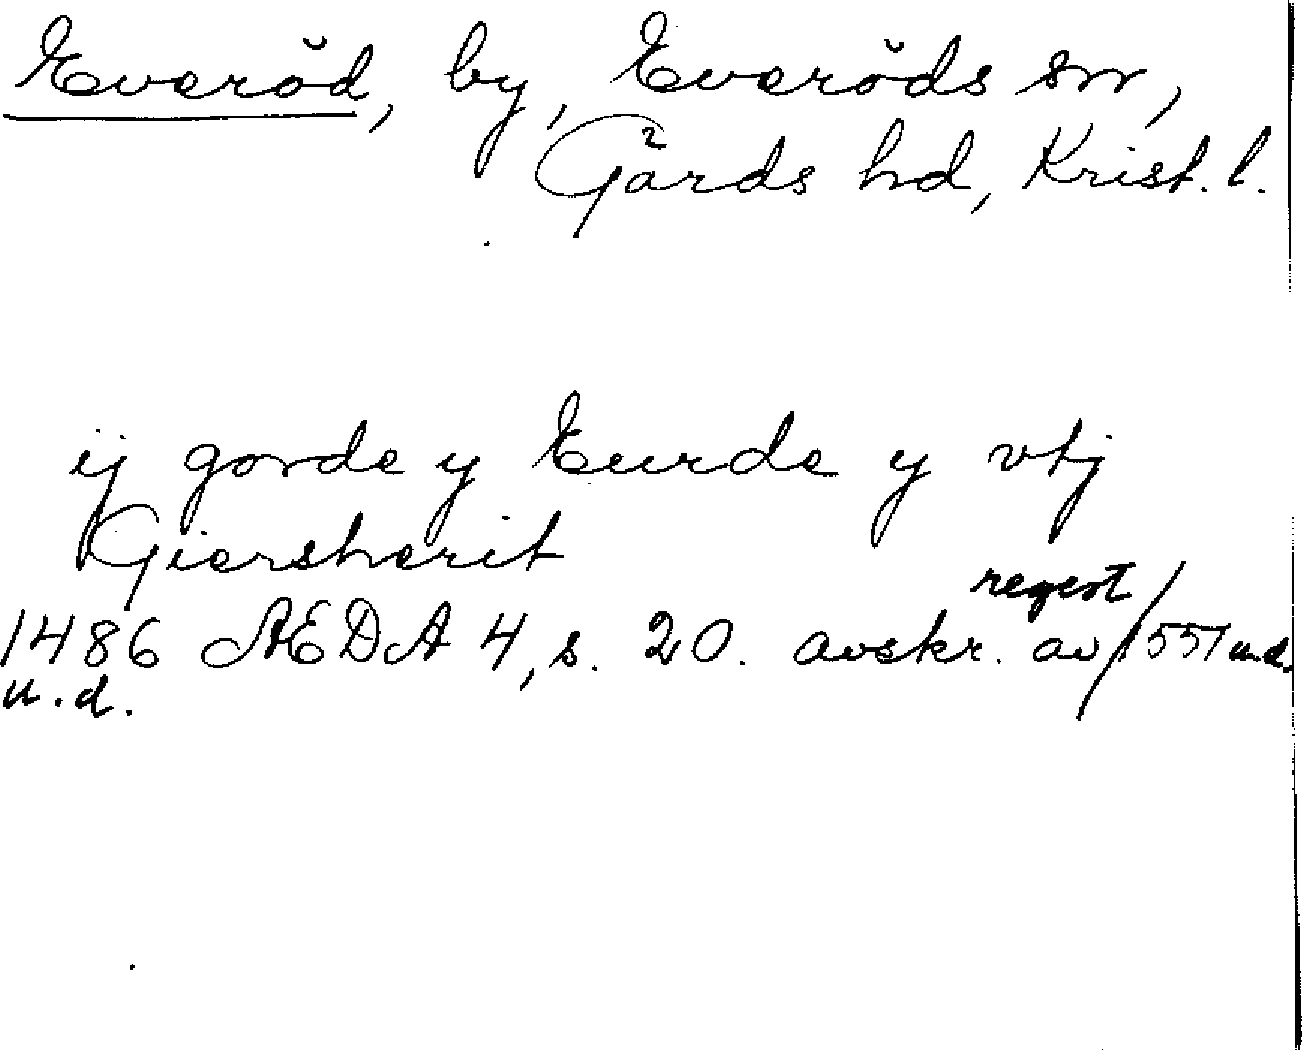 Everöd, by, Everöds sn,
Gärds hd, Krist. l.
ij gorde y Eurde y vtj
Giersherit
regest
1486 ÆDA 4, s. 20. avskr. av / 1551 u.d.
u.d.